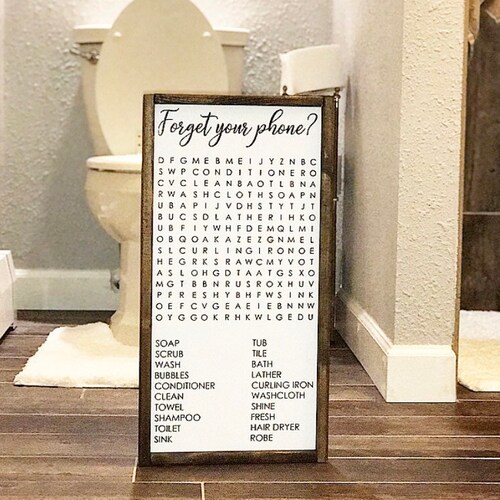 Forget your phone?
D F G M E B M E I J Y Z N B C
S W P C O N D I T I O N E R O
C V C L E A N B A O T L B N A
R W A S H C L O T H S O A P N
U B A P I J V D H S T Y T J T
B U C S D L A T H E R I H K O
U B F I Y W H F D E M Q L M I
O B Q O A K A Z E Z G N M E L
S L C U R L I N G I R O N O E
H E G R K S R A W C M Y V O T
A S L O H G D T A A T G S X O
M G T B B N R U S R O X H U V
P F F R E S H Y B H F W S I N K
O E F C V G E A E I E B N N W
O Y G G O K R H K W L G E D U
SOAP TUB
SCRUB TILE
WASH BATH
BUBBLES LATHER
CONDITIONER CURLING IRON
CLEAN WASHCLOTH
TOWEL SHINE
SHAMPOO FRESH
TOILET HAIR DRYER
SINK ROBE